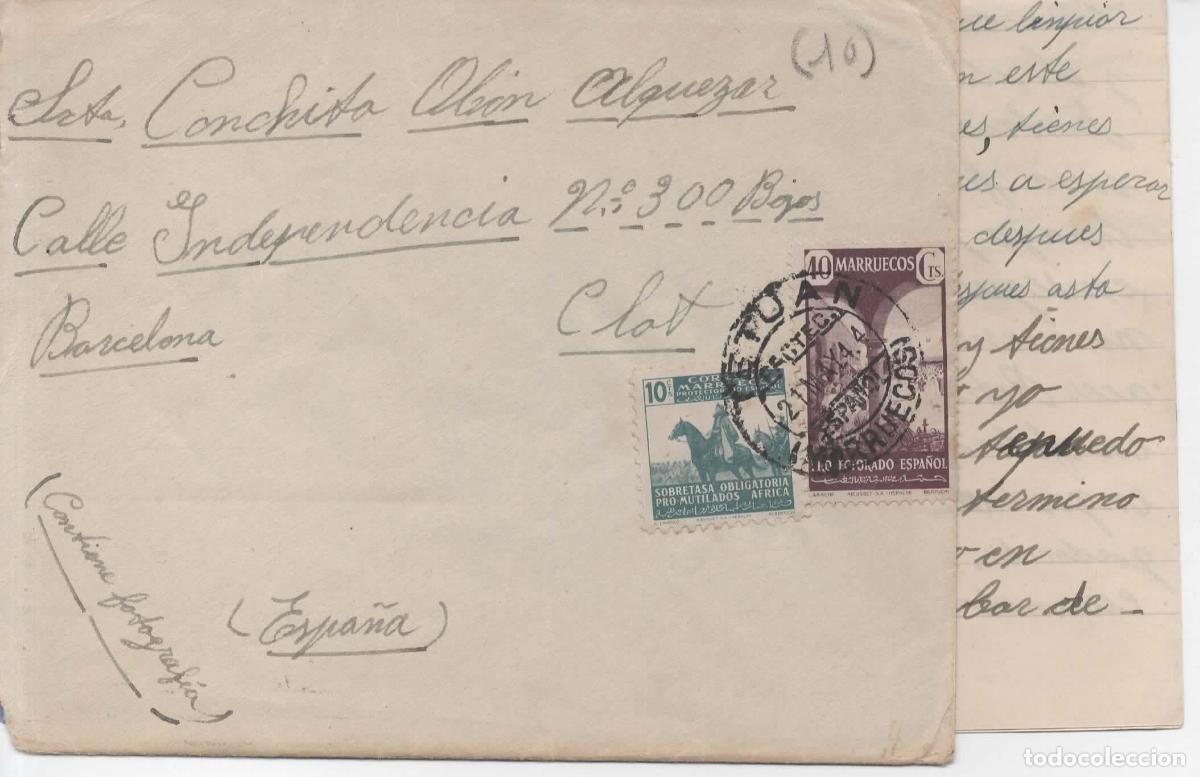 (10)
Srta. Conchita Obón Alquezar
Calle Independencia Nº 300 Bajos
Barcelona Clot
(España)
(Contiene fotografía)
40 MARRUECOS CTS.
PROTECTORADO ESPAÑOL
10 CTS
CORREOS
MARRUECOS
PROTECTORADO ESPAÑOL
SOBRETASA OBLIGATORIA
PRO MUTILADOS AFRICA
TETUAN
ESPAÑOL
(MARRUECOS)
que limpiar
en este
es, tienes
es a esperar
despues
spues asta
y tienes
yo
quedo
termino
en
bar de -
todocoleccion